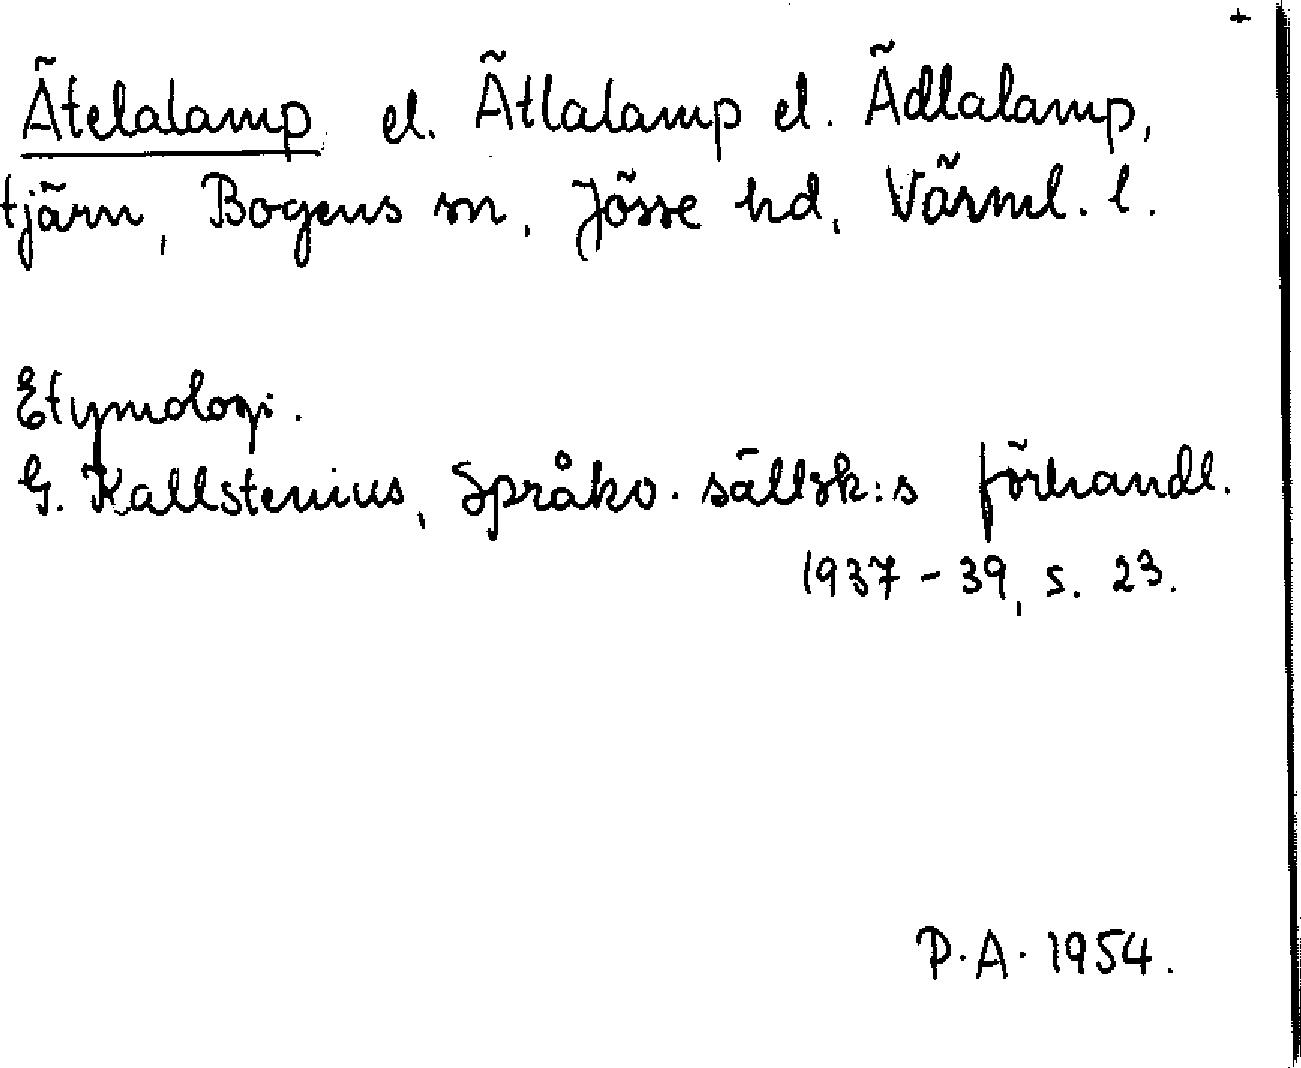 +
Ätelalamp el. Ätlalamp el. Ädlalamp,
tjärn, Bogens sn, Jösse hd, Värml. l.
Etymologi.
G. Kallstenius, Språkv. sällsk:s förhandl.
1937-39, s. 23.
P.A. 1954.